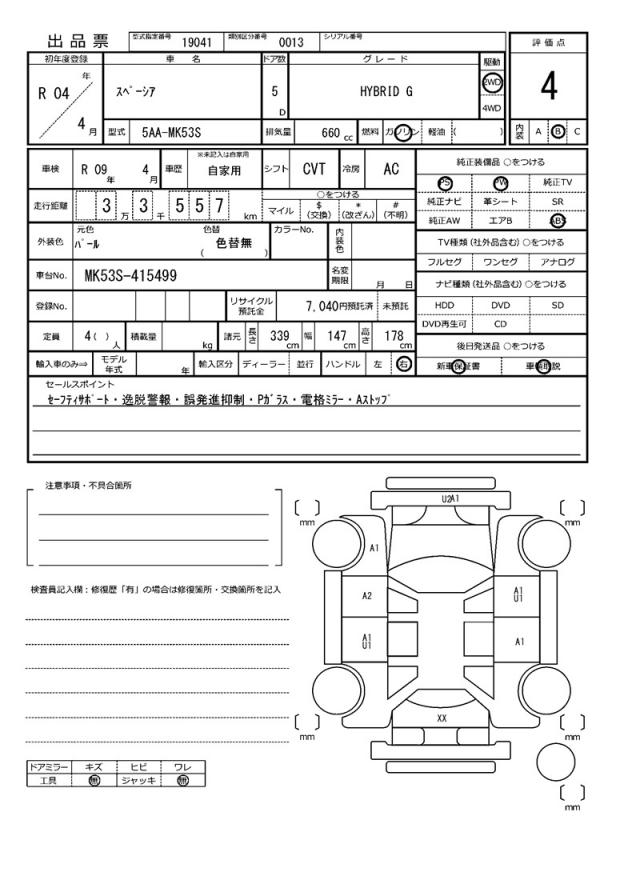 出品票 型式指定番号 19041 類別区分番号 0013 シリアル番号
評価点
4
内装 A B C
初年度登録 車名 ドア数 グレード 駆動
R 04 年 4 月 スペーシア 5 D HYBRID G 2WD 4WD
型式 5AA-MK53S 排気量 660 cc 燃料 ガソリン 軽油 ( )
車検 R 09 年 4 月 車歴 ※未記入は自家用 自家用 シフト CVT 冷房 AC
走行距離 3 万 3 千 5 5 7 km ○をつける
マイル $ (交換) * (改ざん) # (不明)
外装色 元色 パール 色替 色替無 ( ) カラーNo. 内装色
車台No. MK53S-415499 名変期限 月 日
登録No. リサイクル預託金 7,040円預託済 未預託
定員 4( ) 人 積載量 kg 諸元 長さ 339 cm 幅 147 cm 高さ 178 cm
輸入車のみ⇒ モデル年式 年 輸入区分 ディーラー 並行 ハンドル 左 右
純正装備品 ○をつける
PS PW 純正TV
純正ナビ 革シート SR
純正AW エアB ABS
TV種類 (社外品含む) ○をつける
フルセグ ワンセグ アナログ
ナビ種類 (社外品含む) ○をつける
HDD DVD SD
DVD再生可 CD
後日発送品 ○をつける
新車保証書 車輌取説
セールスポイント
セーフティサポート・逸脱警報・誤発進抑制・Pガラス・電格ミラー・Aストップ
注意事項・不具合箇所
検査員記入欄：修復歴「有」の場合は修復箇所・交換箇所を記入
ドアミラー キズ ヒビ ワレ
工具 無 ジャッキ 無
U2A1
mm mm
A1
A2 A1 U1
A1 U1 A1
XX
mm mm
mm